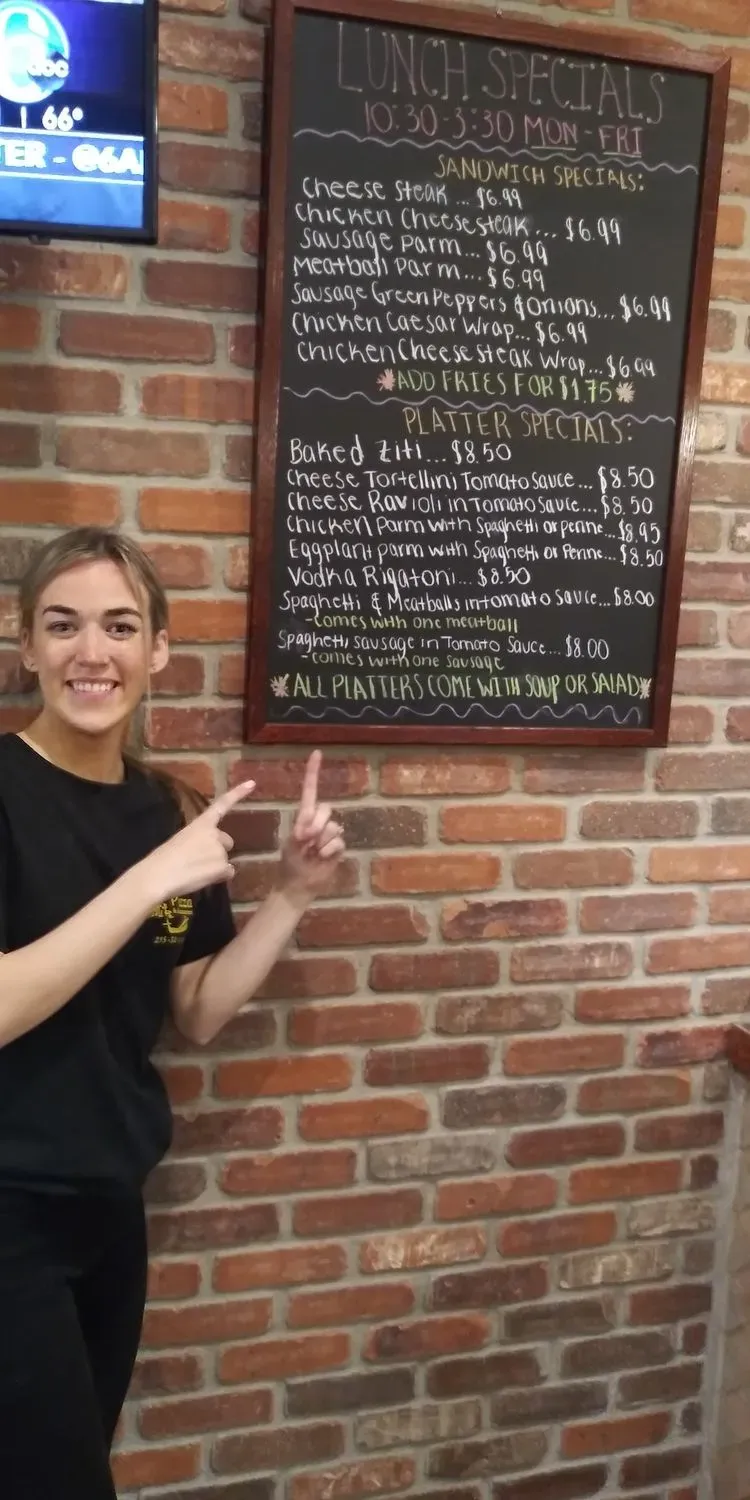 abc
66°
TER - @6A
LUNCH SPECIALS
10:30-3:30 MON-FRI
SANDWICH SPECIALS:
Cheese Steak ... $6.99
Chicken Cheesesteak ... $6.99
Sausage Parm... $6.99
Meatball Parm... $6.99
Sausage Green Peppers & Onions... $6.99
Chicken Caesar Wrap... $6.99
Chicken Cheese Steak Wrap... $6.99
ADD FRIES FOR $1.75
PLATTER SPECIALS:
Baked Ziti... $8.50
Cheese Tortellini Tomato Sauce... $8.50
Cheese Ravioli in Tomato Sauce... $8.50
Chicken Parm with Spaghetti or penne...$8.95
Eggplant parm with Spaghetti or Penne...$8.50
Vodka Rigatoni... $8.50
Spaghetti & Meatballs in tomato Sauce...$8.00
-comes with one meatball
Spaghetti sausage in Tomato Sauce...$8.00
-comes with one sausage
ALL PLATTERS COME WITH SOUP OR SALAD
Pizza